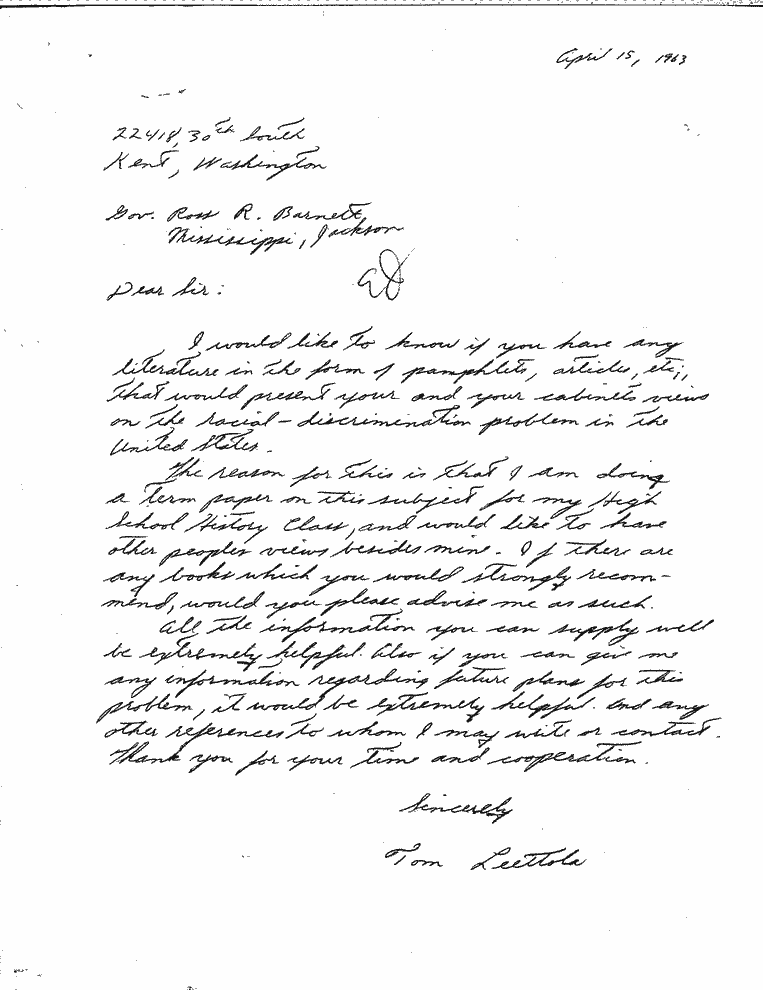 April 15, 1963
22418, 30th South
Kent, Washington
Gov. Ross R. Barnett,
Mississippi, Jackson
Dear Sir:
I would like to know if you have any
literature in the form of pamphlets, articles, etc;,
that would present your and your cabinets views
on the racial-discrimination problem in the
United States.
The reason for this is that I am doing
a term paper on this subject for my High
School History Class, and would like to have
other peoples views besides mine. If there are
any books which you would strongly recom-
mend, would you please advise me as such.
All the information you can supply will
be extremely helpful. Also if you can give me
any information regarding future plans for this
problem, it would be extremely helpful. And any
other references to whom I may write or contact.
Thank you for your time and cooperation.
Sincerely
Tom Leettola